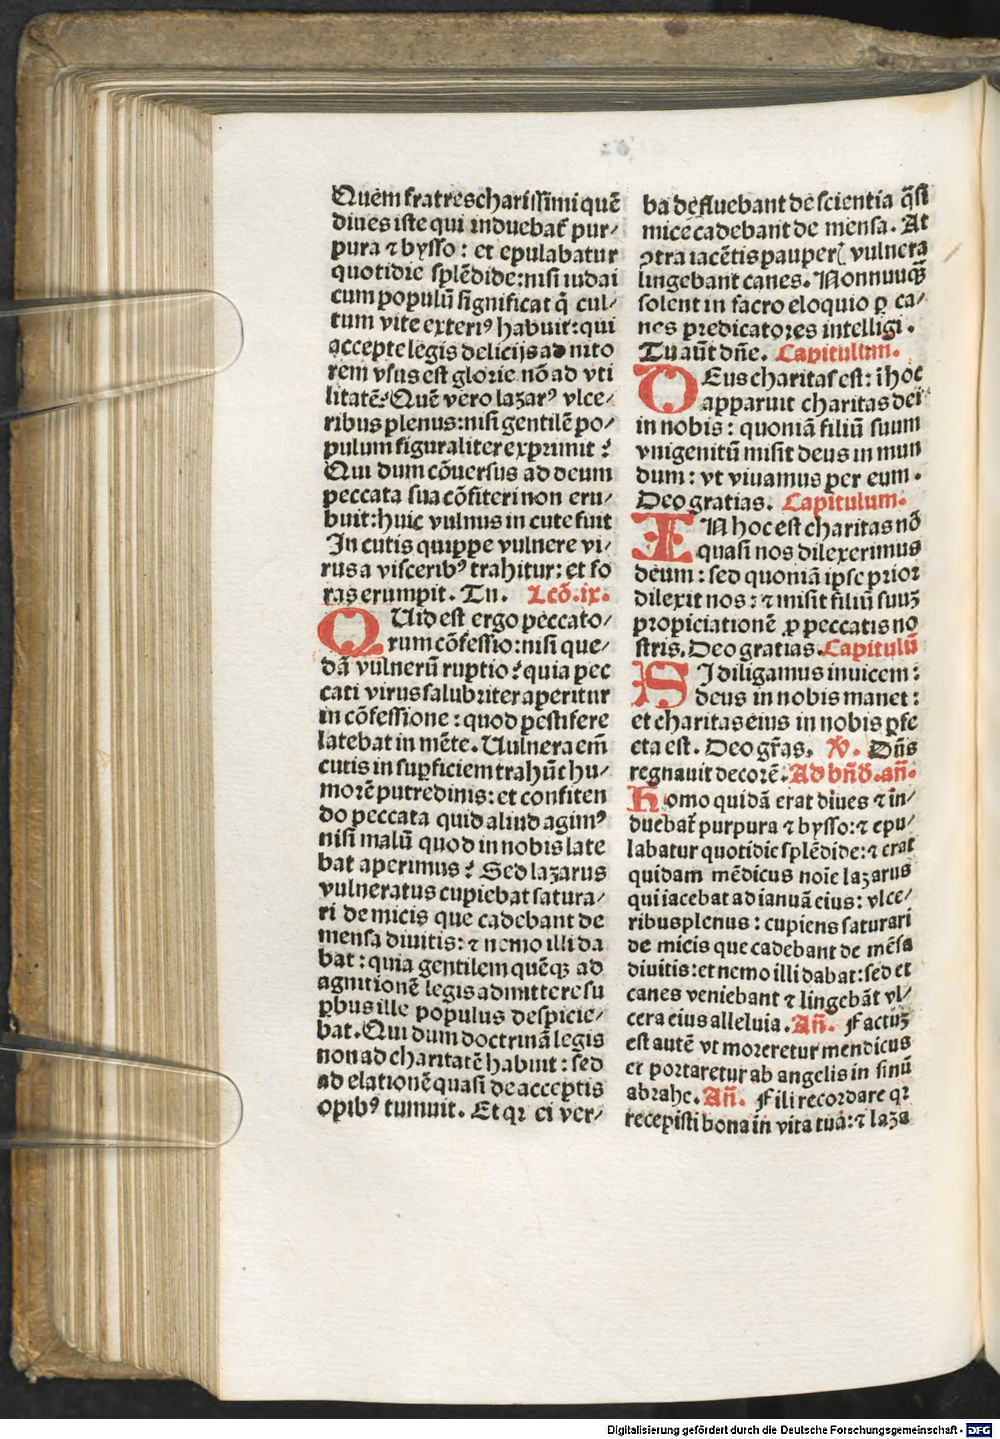 Quem fratres charissimi quē
diues iste qui induebat̄ pur⸗
pura ⁊ bysso : et epulabatur
quotidie splēdide: nisi iudai
cum populū significat q̄ cul⸗
tum vite exteriꝰ habuit: qui
accepte legis delicijs ad nito
rem vsus est glorie nō ad vti
litatē? Quē vero lazarꝰ vlce⸗
ribus plenus: nisi gentilē po⸗
pulum figuraliter exprimit?
Qui dum cōuersus ad deum
peccata sua cōfiteri non eru⸗
buit: huic vulnus in cute fuit
In cutis quippe vulnere vi⸗
rus a visceribꝰ trahitur: et fo
ras erumpit. Tu. Lcō.ix.
QUid est ergo peccato⸗
rum cōfessio: nisi que⸗
dā vulnerū ruptio? quia pec
cati virus salubriter aperitur
in cōfessione : quod pestifere
latebat in mēte. Uulnera em̄
cutis in suꝑficiem trahūt hu⸗
morē putredinis: et confiten
do peccata quid aliud agimꝰ
nisi malū quod in nobis late
bat aperimus? Sed lazarus
vulneratus cupiebat satura⸗
ri de micis que cadebant de
mensa diuitis: ⁊ nemo illi da
bat : quia gentilem quēqꝫ ad
agnitionē legis admittere su
ꝑbus ille populus despicie⸗
bat. Qui dum doctrinā legis
non ad charitatē habuit : sed
ad elationē quasi de acceptis
opibꝰ tumuit. Et qꝛ ei ver⸗
ba defluebant de scientia q̄si
mice cadebant de mensa. At
ꝯtra iacētis pauperꝭ vulnera
lingebant canes. Nonnunqꝫ̄
solent in sacro eloquio ꝑ ca⸗
nes predicatores intelligi.
Tu aūt dn̄e. Capitulum.
DEus charitas est: ī hoc
apparuit charitas dei
in nobis : quoniā filiū suum
vnigenitū misit deus in mun
dum: vt viuamus per eum.
Deo gratias. Capitulum.
IN hoc est charitas nō
quasi nos dilexerimus
deum: sed quoniā ipse prior
dilexit nos: ⁊ misit filiū suuꝫ
propiciationē ꝓ peccatis no
stris. Deo gratias. Capitulū
SI diligamus inuicem:
deus in nobis manet:
et charitas eius in nobis ꝑfe
cta est. Deo gr̄as. ℣. Dn̄s
regnauit decorē. Ad bn̄d. an̄.
Homo quidā erat diues ⁊ in⸗
duebat̄ purpura ⁊ bysso: ⁊ epu⸗
labatur quotidie splēdide: ⁊ erat
quidam mēdicus noīe lazarus
qui iacebat ad ianuā eius: vlce⸗
ribus plenus: cupiens saturari
de micis que cadebant de mēsa
diuitis: et nemo illi dabat: sed et
canes veniebant ⁊ lingebāt vl⸗
cera eius alleluia. An̄. Factuꝫ
est autē vt moreretur mendicus
et portaretur ab angelis in sinū
abrahe. An̄. Fili recordare qꝛ
recepisti bona in vita tua: ⁊ laza
Digitalisierung gefördert durch die Deutsche Forschungsgemeinschaft - DFG